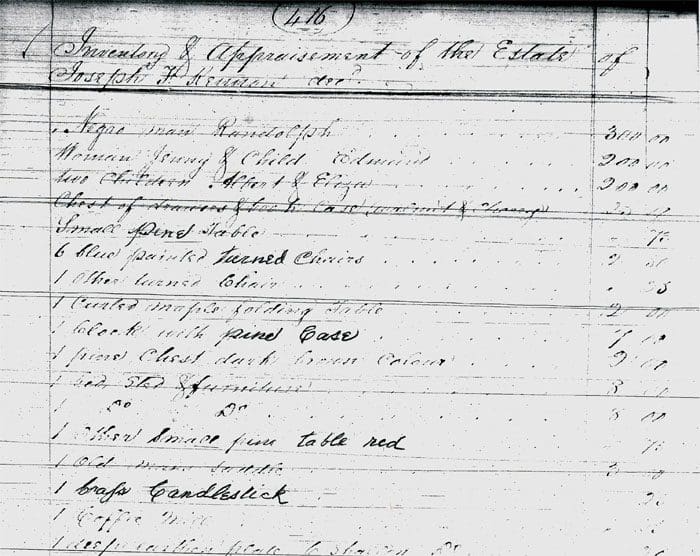 416
Inventory & Appraisement of the Estate of
Joseph H Kennon decd
Negro man Randolph 300 00
Woman Jenny & Child Edmund 200 00
two Children Albert & Eliza 200 00
Chest of drawers & book Case walnut & Cherry
Small pine Table 75
6 blue painted turned Chairs 2
1 Other turned Chair 25
1 Curled maple folding Table 2 00
1 Clock with pine Case 7 00
1 pine Chest dark brown Colour 2 00
1 bed Sted & furniture 8
1 Do Do 8 00
1 Other Small pine table red 75
1 Old mans Saddle 3
1 brass Candlestick
1 Coffee Mill
1 plate 6